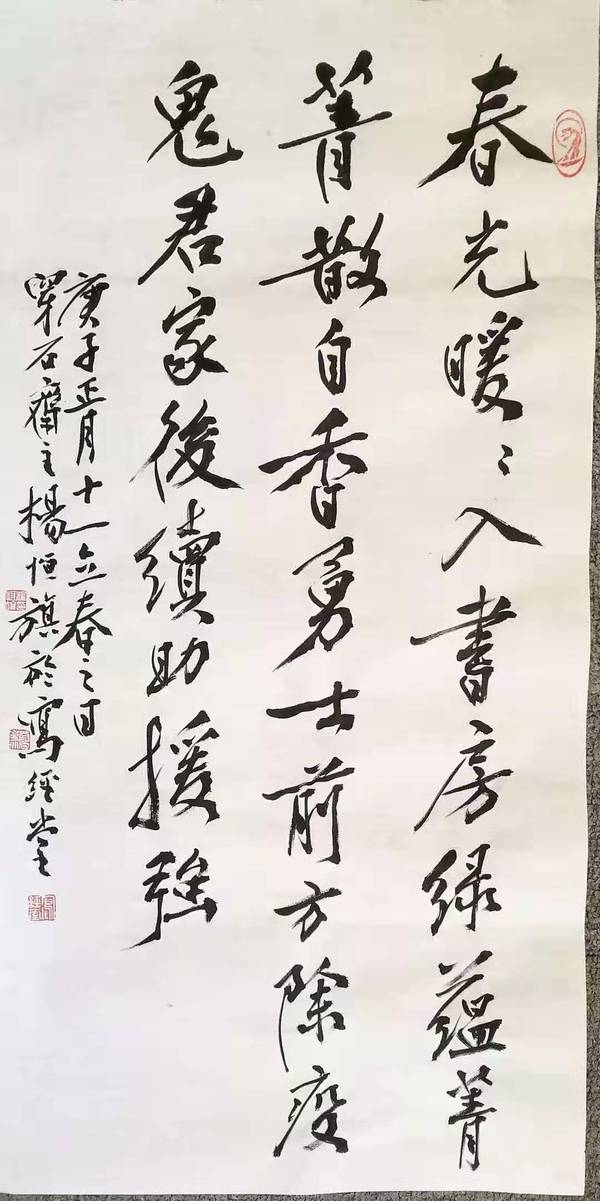 春光暖〻入書房緑蘊菁
菁散自香勇士前方除疫
鬼君家後續助援強
庚子正月十一立春之日
石齋主楊恒旗於寫經堂